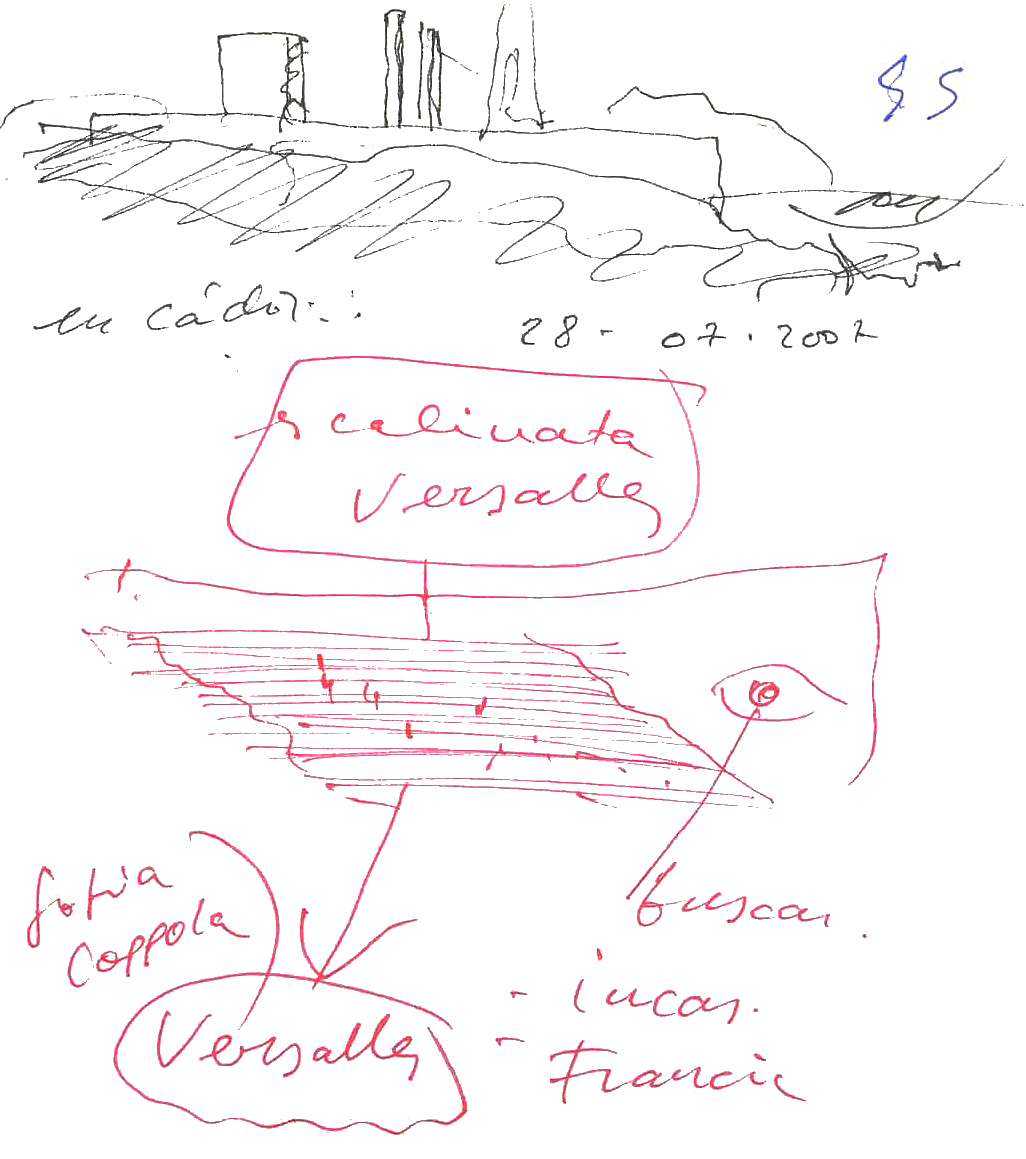 85
en cádiz:.:
28 - 07 . 2007
escalinata
versalles
buscar.
Sofia
Coppola
- incas.
Versalles
- Francia